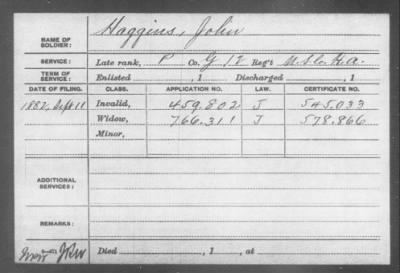 NAME OF SOLDIER: Haggins, John
SERVICE: Late rank, P Co. G 12 Reg't U.S.C.H.A.
TERM OF SERVICE: Enlisted , 1 Discharged , 1
DATE OF FILING. CLASS. APPLICATION NO. LAW. CERTIFICATE NO.
1882, Sept 11 Invalid, 459.802 J 545.033
Widow, 766.311 J 578.866
Minor,
ADDITIONAL SERVICES:
REMARKS:
Died , 1 , at